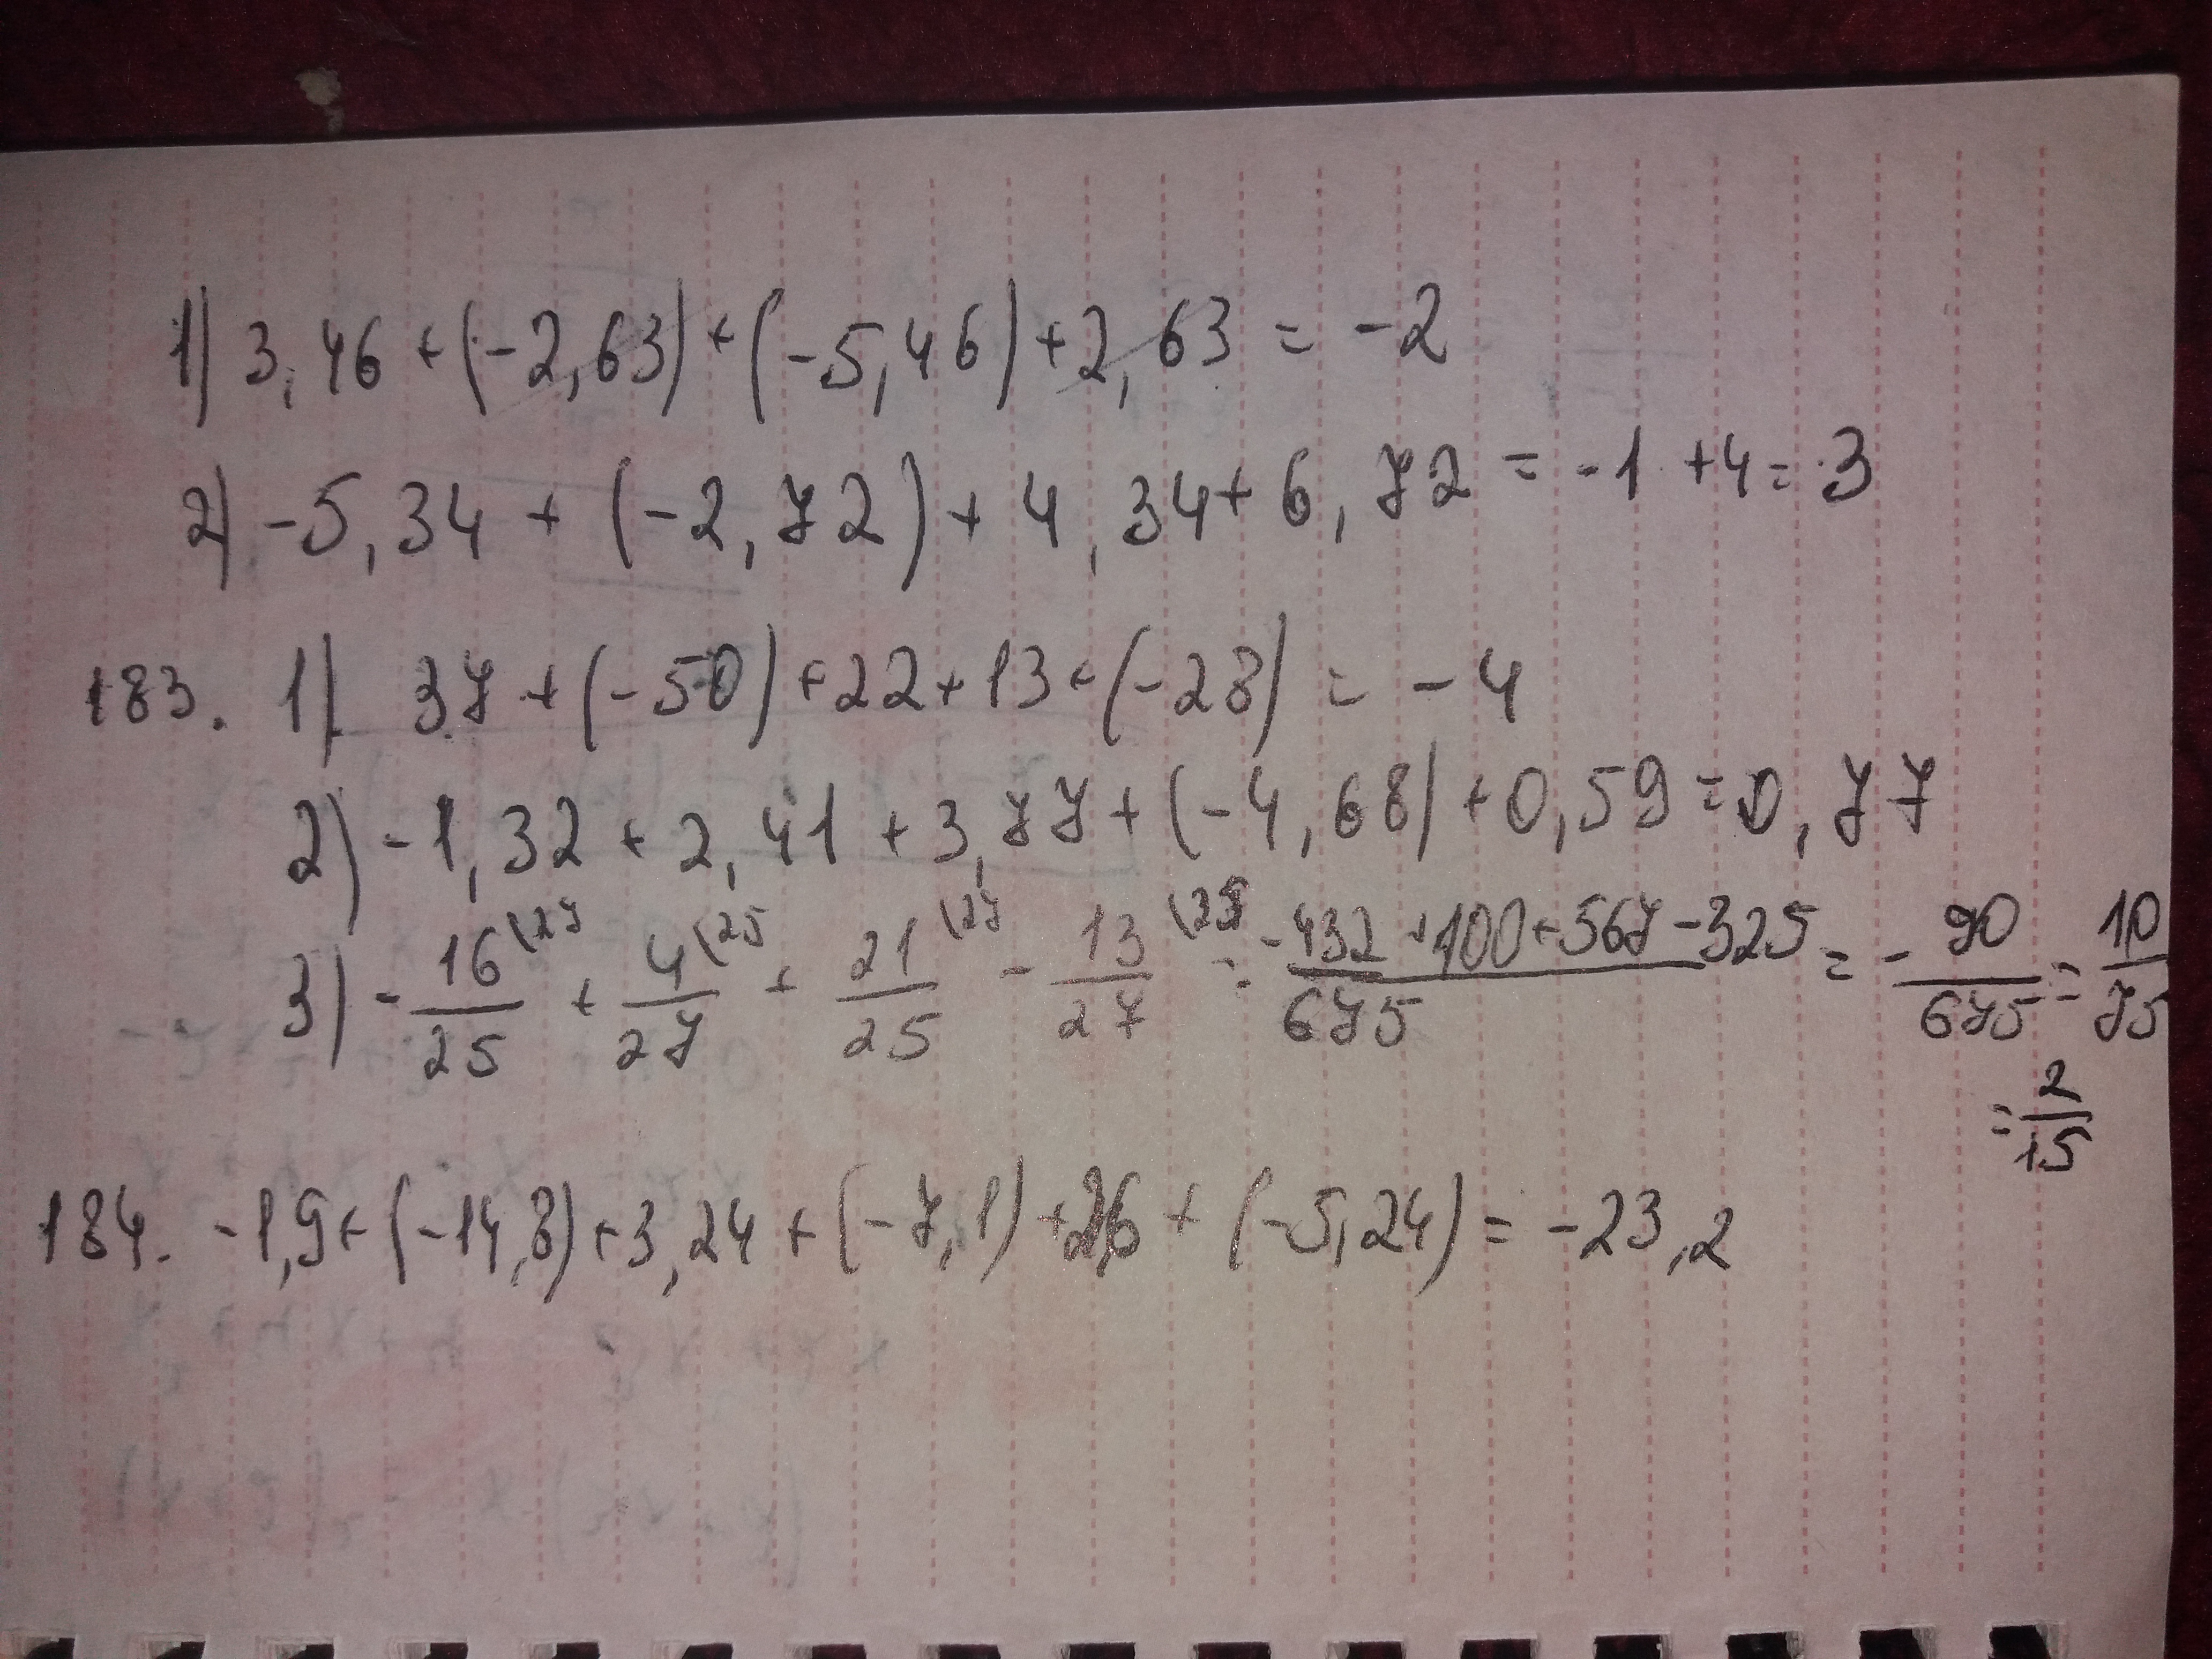 1) 3,46 + (-2,63) + (-5,46) + 2,63 = -2
2) -5,34 + (-2,72) + 4,34 + 6,72 = -1 + 4 = 3
183. 1) 37 + (-50) + 22 + 13 + (-28) = -4
2) -1,32 + 2,41 + 3,77 + (-4,68) + 0,59 = 0,77
3) -16\27/25 + 4\25/27 + 21\27/25 - 13\25/27 = -432 + 100 + 567 - 325/675 = -90/675 = 10/75
= 2/15
184. -1,9 + (-14,8) + 3,24 + (-7,1) + 2,6 + (-5,24) = -23,2